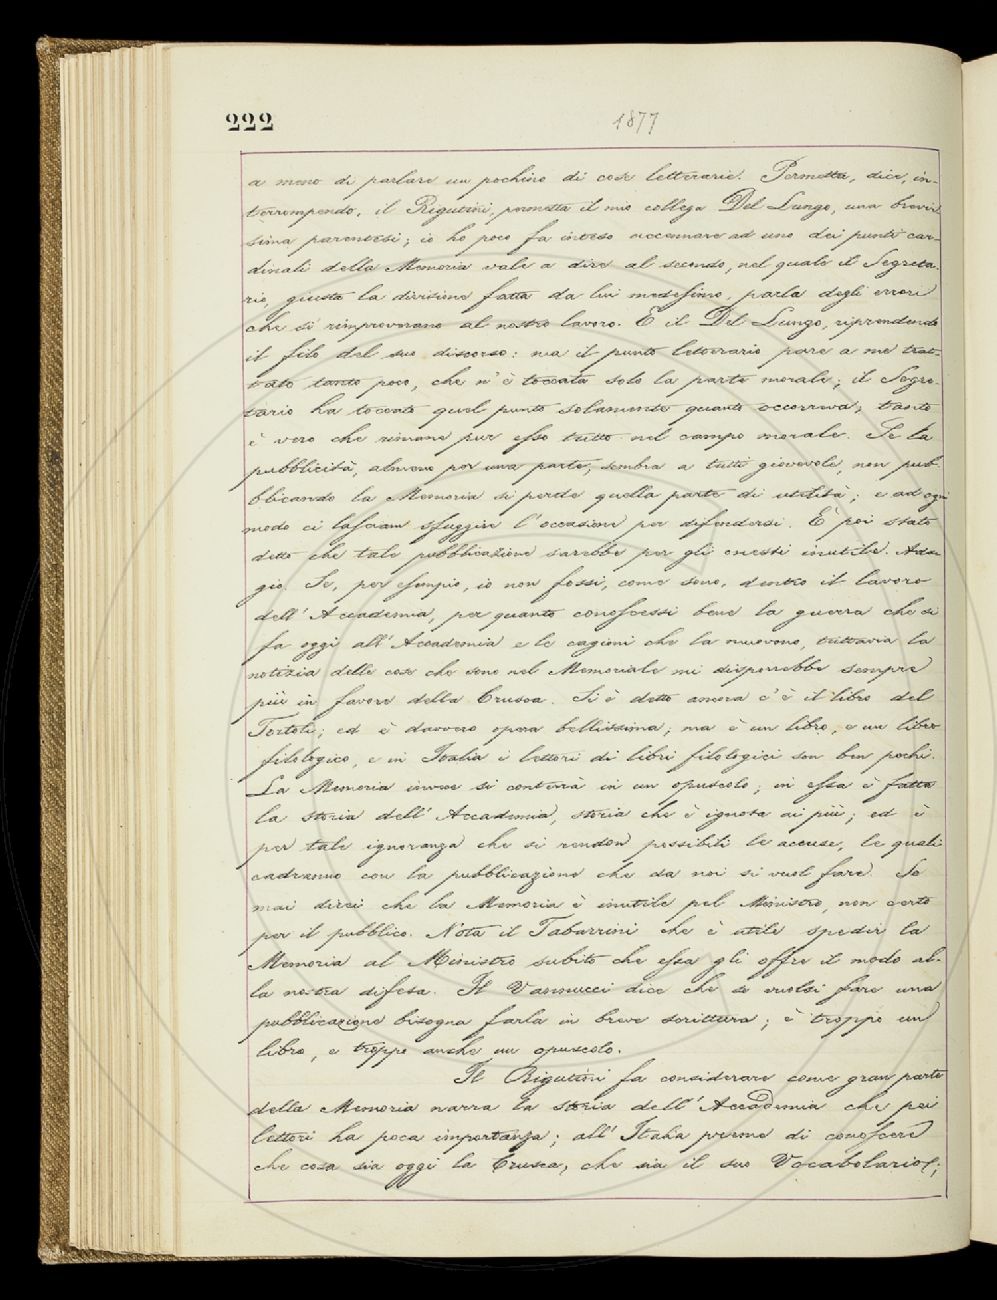 222
1877
a meno di parlare un pochino di cose letterarie. Permetta, dice, in-
terrompendo, il Rigutini, permetta il mio collega Del Lungo, una brevis-
sima parentesi; io ho poco fa inteso accennare ad uno dei punti car-
dinali della Memoria vale a dire al secondo, nel quale il Segreta-
rio, giusta la divisione fatta da lui medesimo, parla degli errori
che si rimproverano al nostro lavoro. E il Del Lungo, riprendendo
il filo del suo discorso: ma il punto letterario pare a me trat-
tato tanto poco, che n'è toccata solo la parte morale; il Segre-
tario ha toccato quel punto solamente quanto occorreva; tanto
è vero che rimane pur esso tutto nel campo morale. Se la
pubblicità, almeno per una parte, sembra a tutti giovevole, non pub-
blicando la Memoria si perde quella parte di utilità; e ad ogni
modo ci lasciam sfuggire l'occasione per difendersi. È poi stato
detto che tale pubblicazione sarebbe per gli onesti inutile. Ada-
gio. Se, per esempio, io non fossi, come sono, dentro il lavoro
dell'Accademia, per quanto conoscessi bene la guerra che si
fa oggi all'Accademia e le cagioni che la muovono, tuttavia la
notizia delle cose che sono nel Memoriale mi disporrebbe sempre
più in favore della Crusca. Si è detto ancora c'è il libro del
Tortoli; ed è davvero opera bellissima; ma è un libro, e un libro
filologico, e in Italia i lettori di libri filologici son ben pochi.
La Memoria invece si conterrà in un opuscolo; in essa è fatta
la storia dell'Accademia, storia che è ignota ai più; ed è
per tale ignoranza che si rendon possibili le accuse, le quali
cadranno con la pubblicazione che da noi si vuol fare. Se
mai direi che la Memoria è inutile pel Ministro, non certo
per il pubblico. Nota il Tabarrini che è utile spedir la
Memoria al Ministro subito che essa gli offre il modo al-
la nostra difesa. Il Vannucci dice che se vuolsi fare una
pubblicazione bisogna farla in breve scrittura; è troppo un
libro, e troppo anche un opuscolo.
Il Rigutini fa considerare come gran parte
della Memoria narra la storia dell'Accademia che pei
lettori ha poca importanza; all'Italia preme di conoscere
che cosa sia oggi la Crusca, che sia il suo Vocabolario;